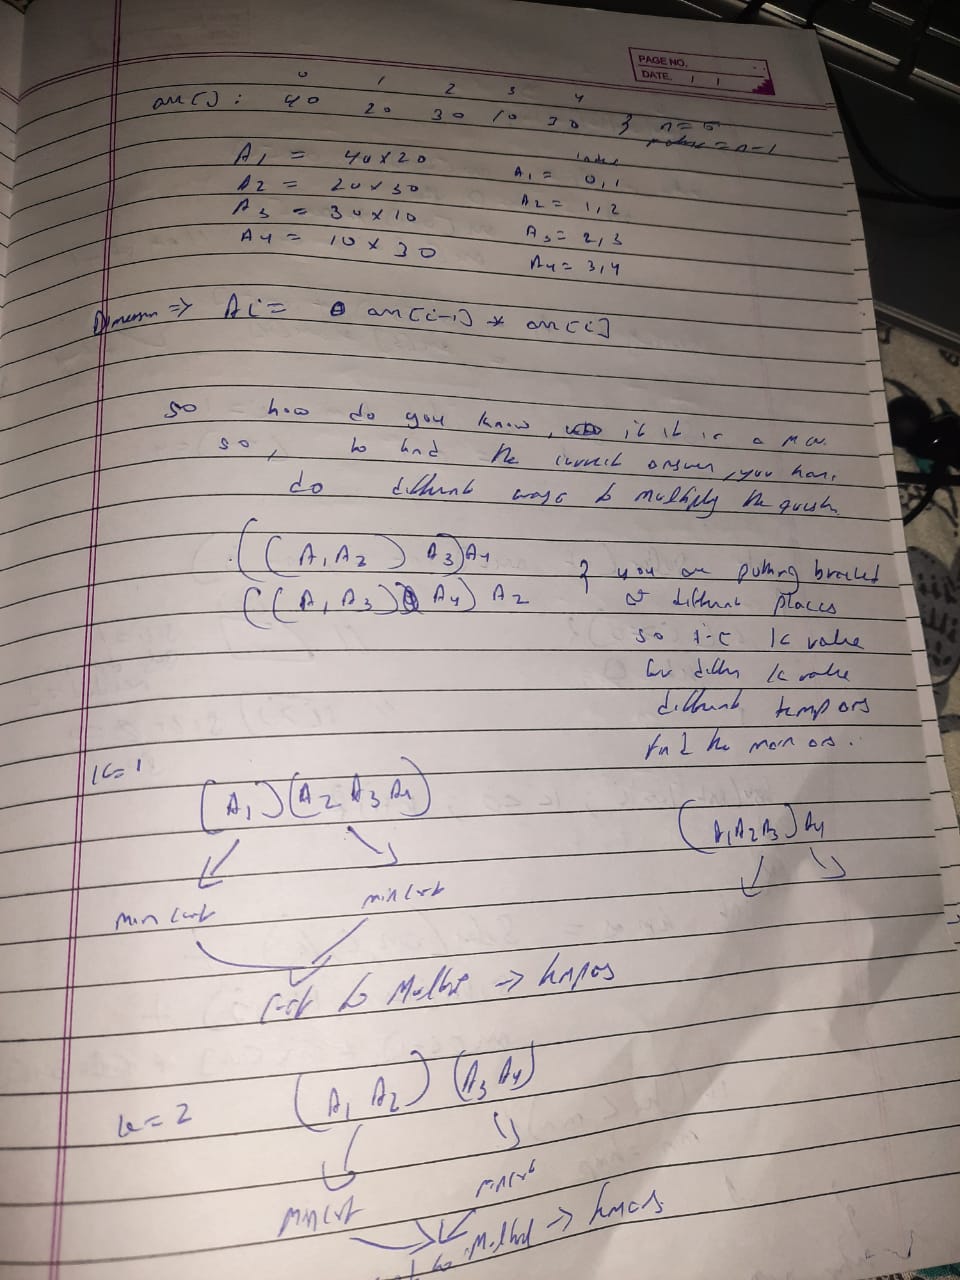 PAGE NO.
DATE. / /
0 1 2 3 4
arr[] : 40 20 30 10 30 } n=5
matrix = n-1
index
A1 = 40x20 A1 = 0,1
A2 = 20x30 A2 = 1,2
A3 = 30x10 A3 = 2,3
A4 = 10x30 A4 = 3,4
Dimension => Ai = arr[i-1] * arr[i]
so how do you know, if it is a MCM
so, to find the correct answer, you have
do different ways to multiply the
((A1A2) A3)A4
((A1A3) A4) A2
} you are putting bracket
at different places
so i.e k value
for k value
different temp ans
find the main ans.
k=1
(A1)(A2 A3 A4)
min cost min cost
cost to → tmpans
(A1A2A3)A4
k=2
(A1 A2) (A3 A4)
min cost min cost
to → tmpans